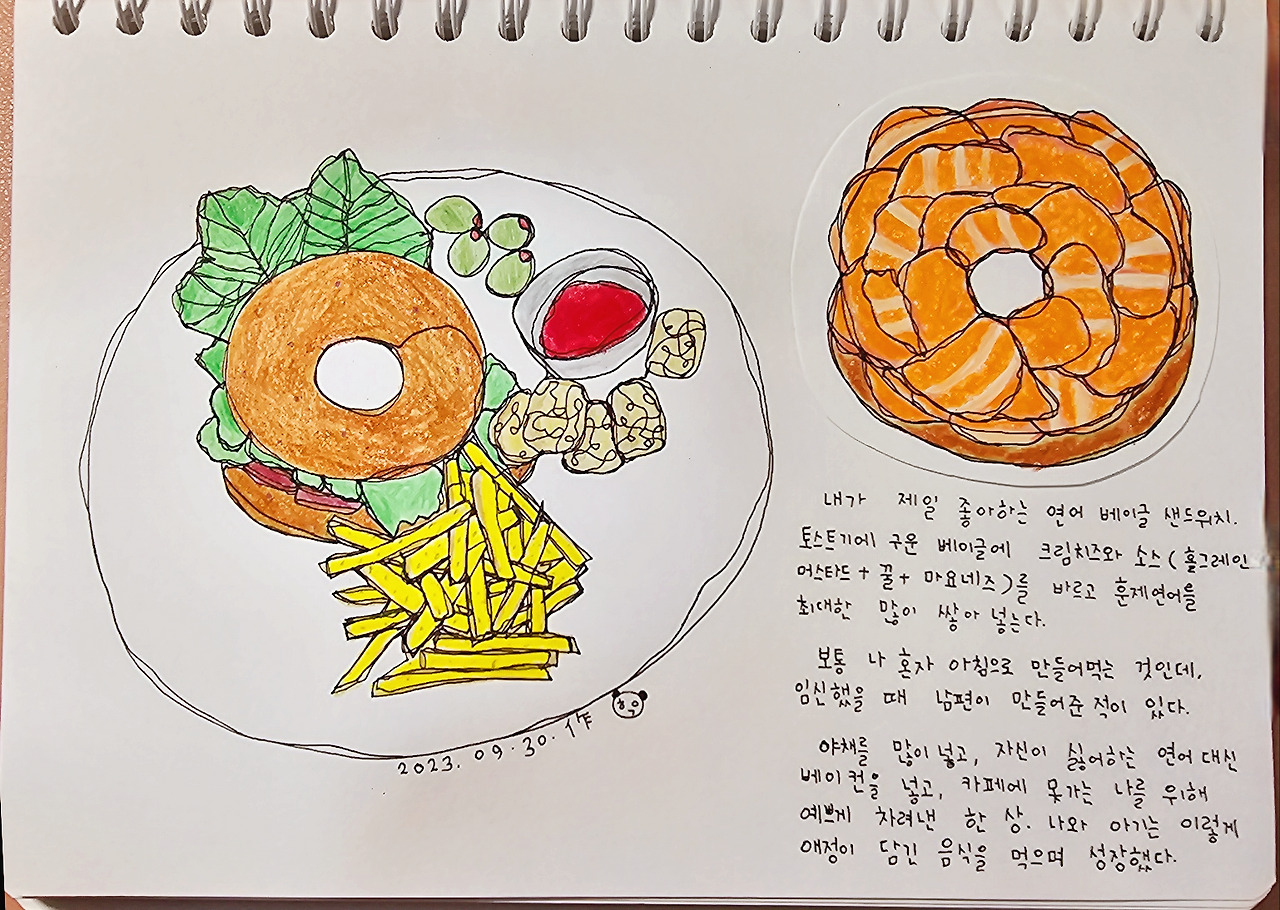 내가 제일 좋아하는 연어 베이글 샌드위치.
토스트기에 구운 베이글에 크림치즈와 소스(홀그레인
머스타드+꿀+마요네즈)를 바르고 훈제연어를
최대한 많이 쌓아 넣는다.
보통 나 혼자 아침으로 만들어먹는 것인데,
임신했을 때 남편이 만들어준 적이 있다.
야채를 많이 넣고, 자신이 싫어하는 연어 대신
베이컨을 넣고, 카페에 못가는 나를 위해
예쁘게 차려낸 한 상. 나와 아기는 이렇게
애정이 담긴 음식을 먹으며 성장했다.
2023. 09. 30. 1作